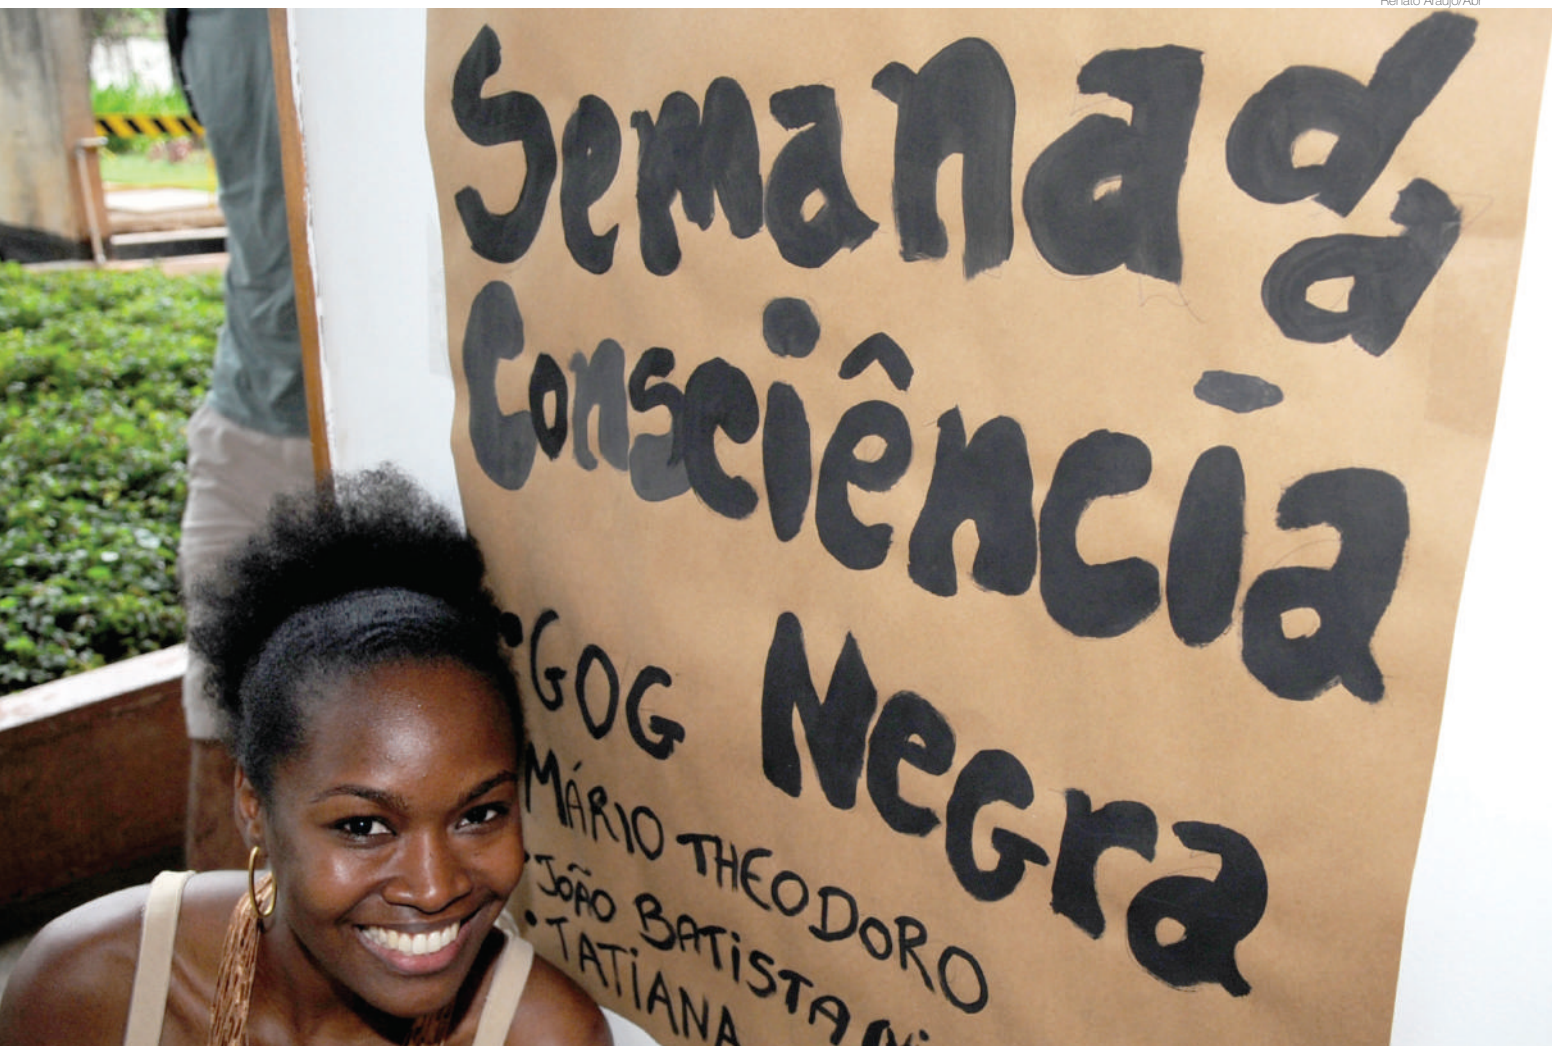 Renato Araújo/ABr
Semana da
Consciência
Negra
• GOG
MÁRIO THEODORO
• JOÃO BATISTA
• TATIANA